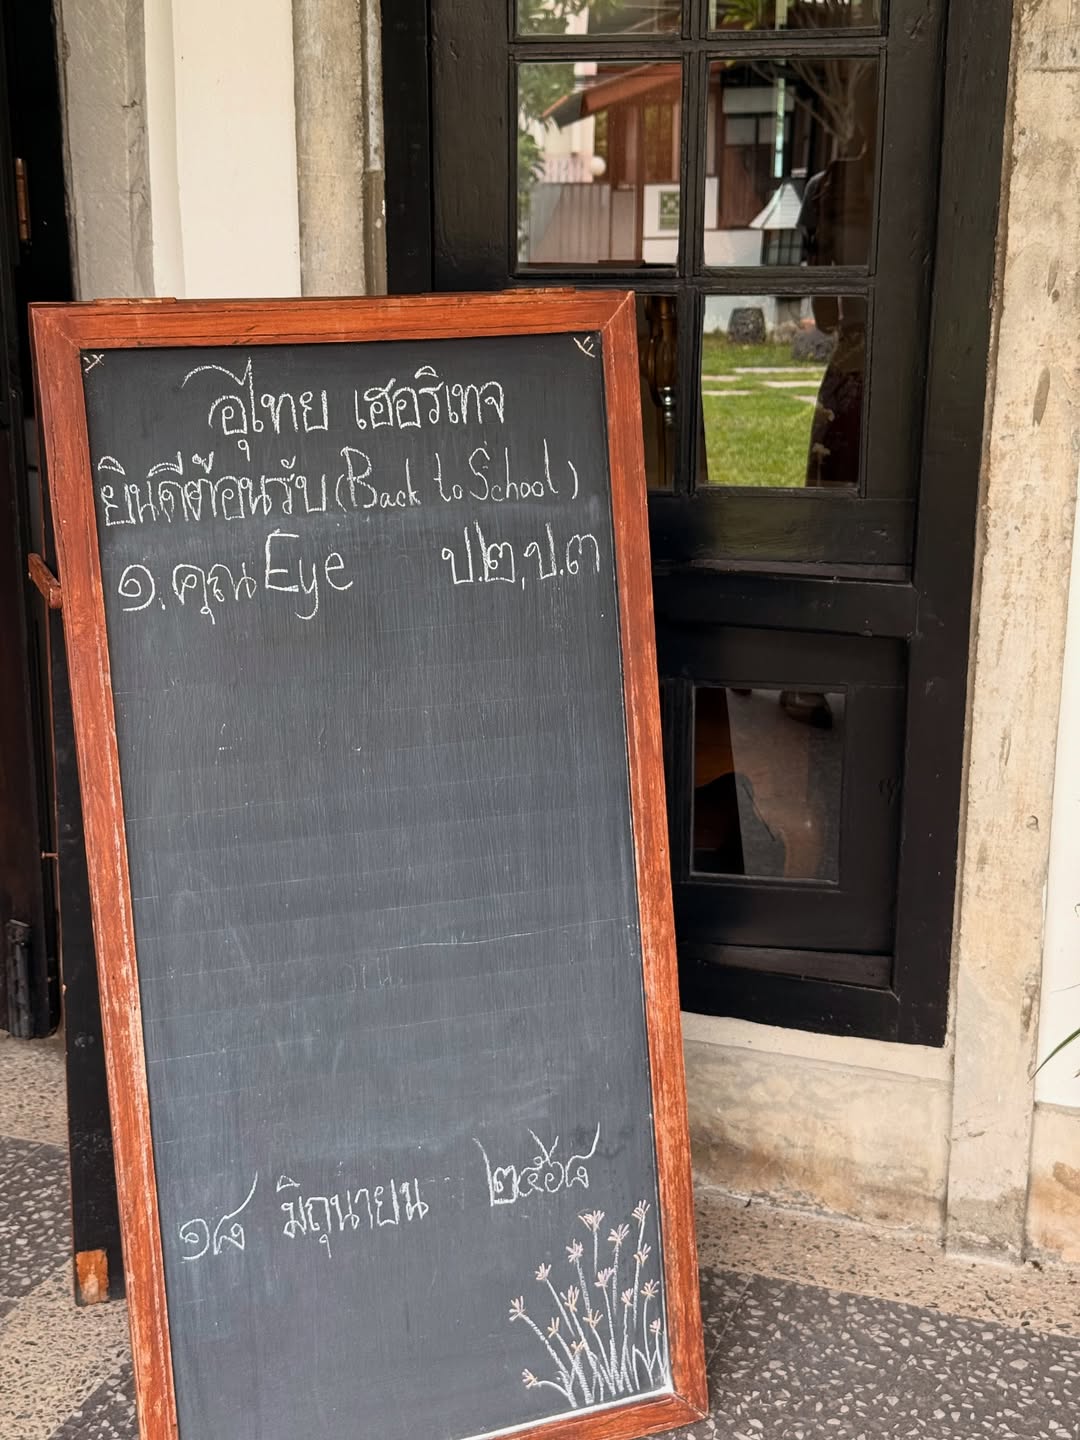 อุไทย เฮอริเทจ
ยินดีต้อนรับ (Back to School)
๑. คุณ Eye ป.๒, ป.๓
๑๘ มิถุนายน ๒๕๖๘